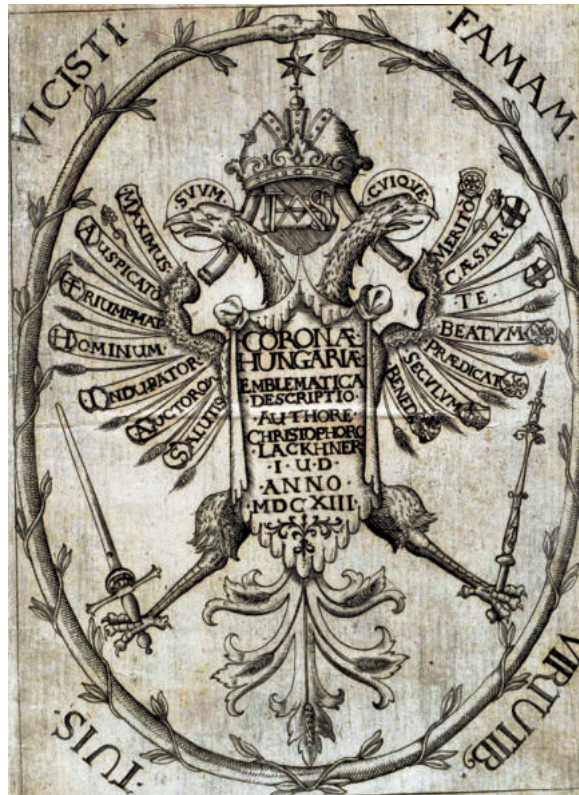 VICISTI · FAMAM ·
SVVM · CVIQVE ·
MAXIMUS ·
AUSPICATO
TRIUMPHAT
DOMINUM ·
INDUPATOR ·
AUCTOROR ·
SALUTIS
MERITO
CÆSAR ·
TE ·
BEATVM ·
PRÆDICAT
SECULVM
CORONÆ ·
HUNGARIÆ
EMBLEMATICA
· DESCRIPTIO ·
· AUTHORE ·
CHRISTOPHORO
· LACKHNER
· I · U · D
· ANNO ·
MDCXIII ·
TUIS · VIRTUTIB